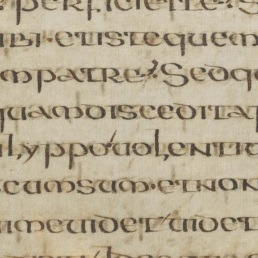 perficiette: S
ibi · etistequem
mpatre? Sedqu
quamdisceditaq
il,yppouolentiu
scumsum · etnon
timeuidetuidet